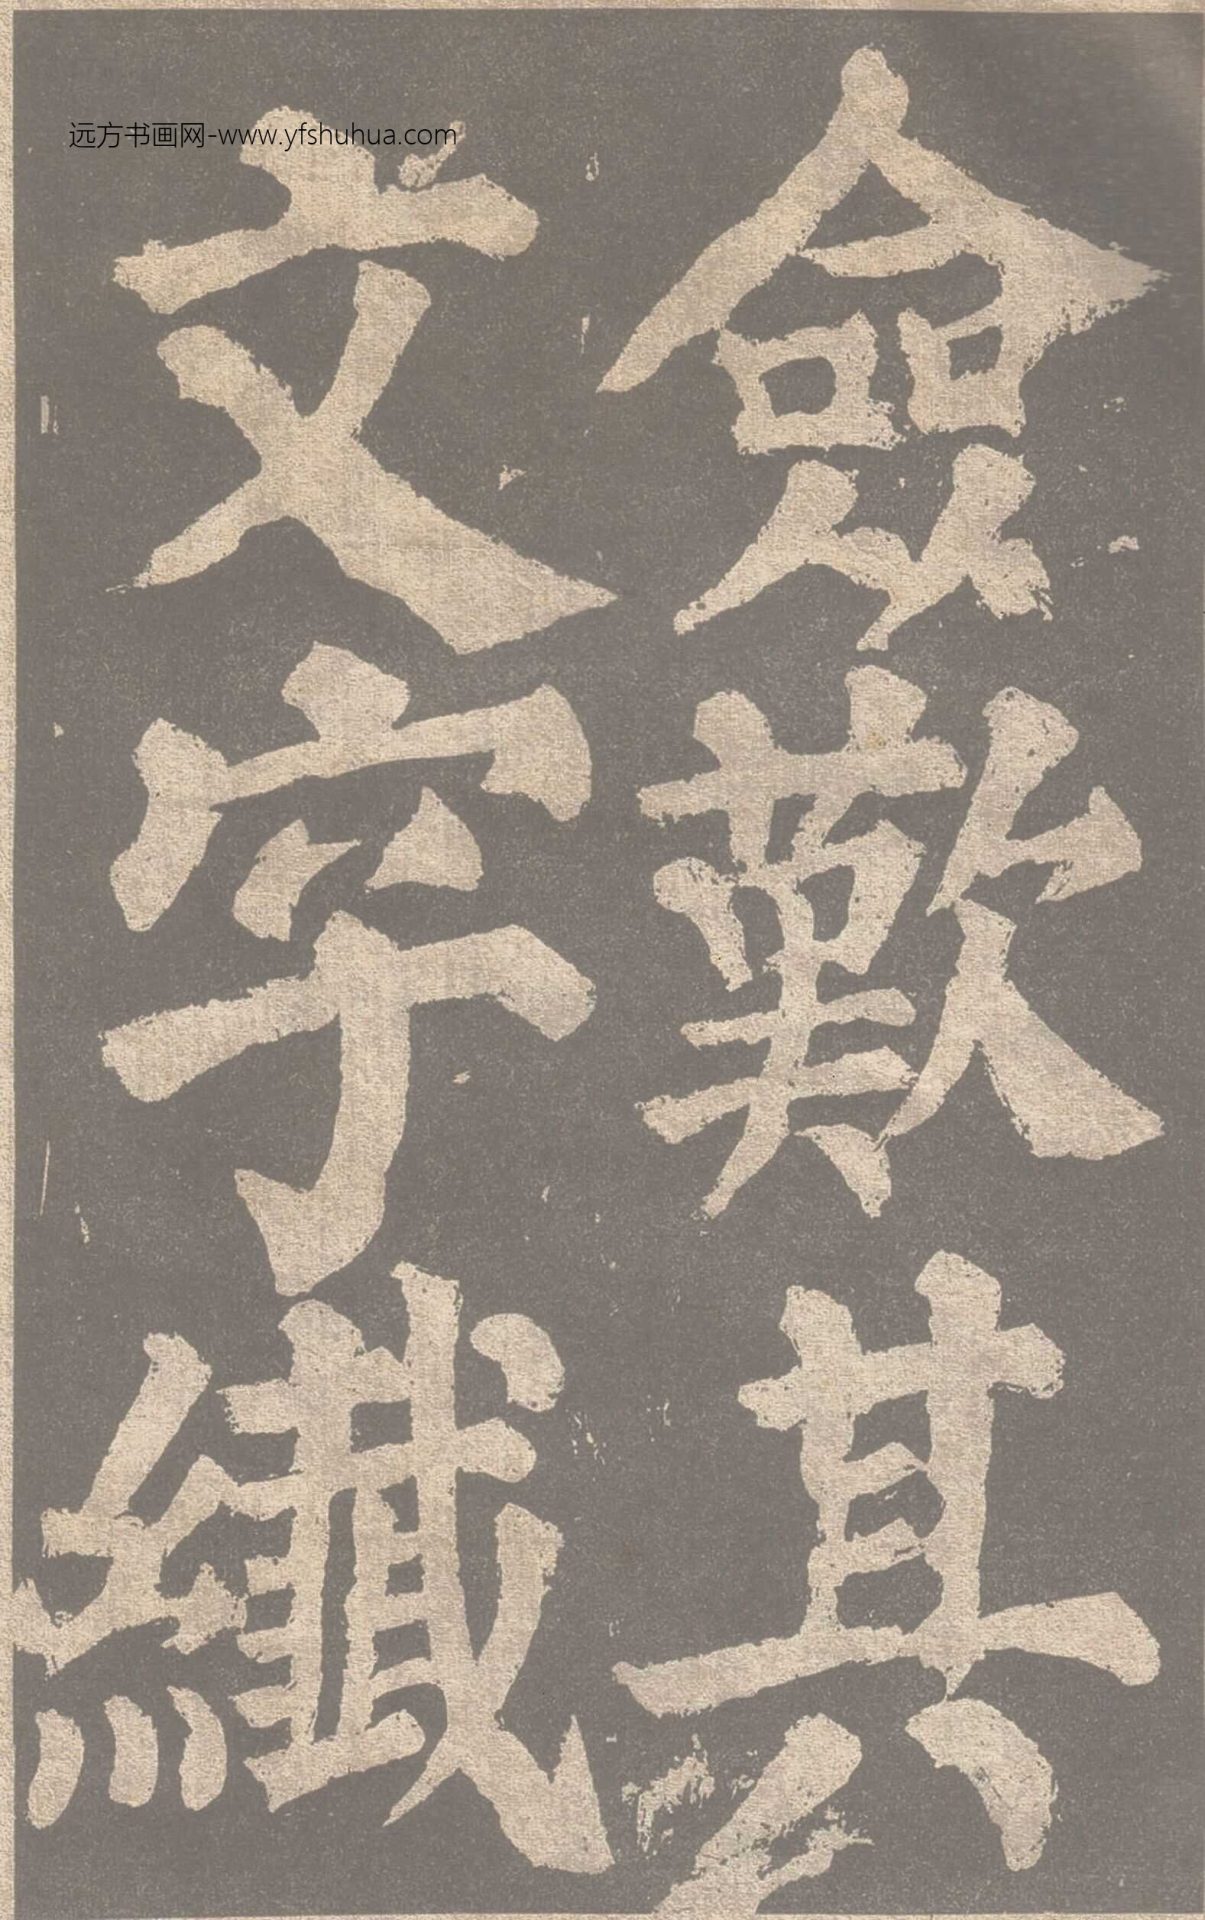 僉歎其
文字纖
远方书画网-www.yfshuhua.com